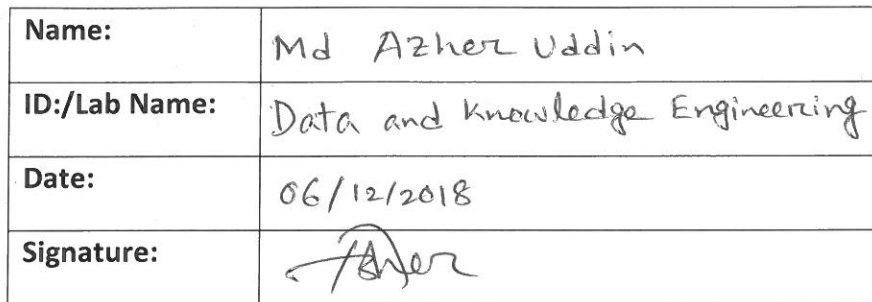 Name: Md Azher Uddin
ID:/Lab Name: Data and Knowledge Engineering
Date: 06/12/2018
Signature: Azher